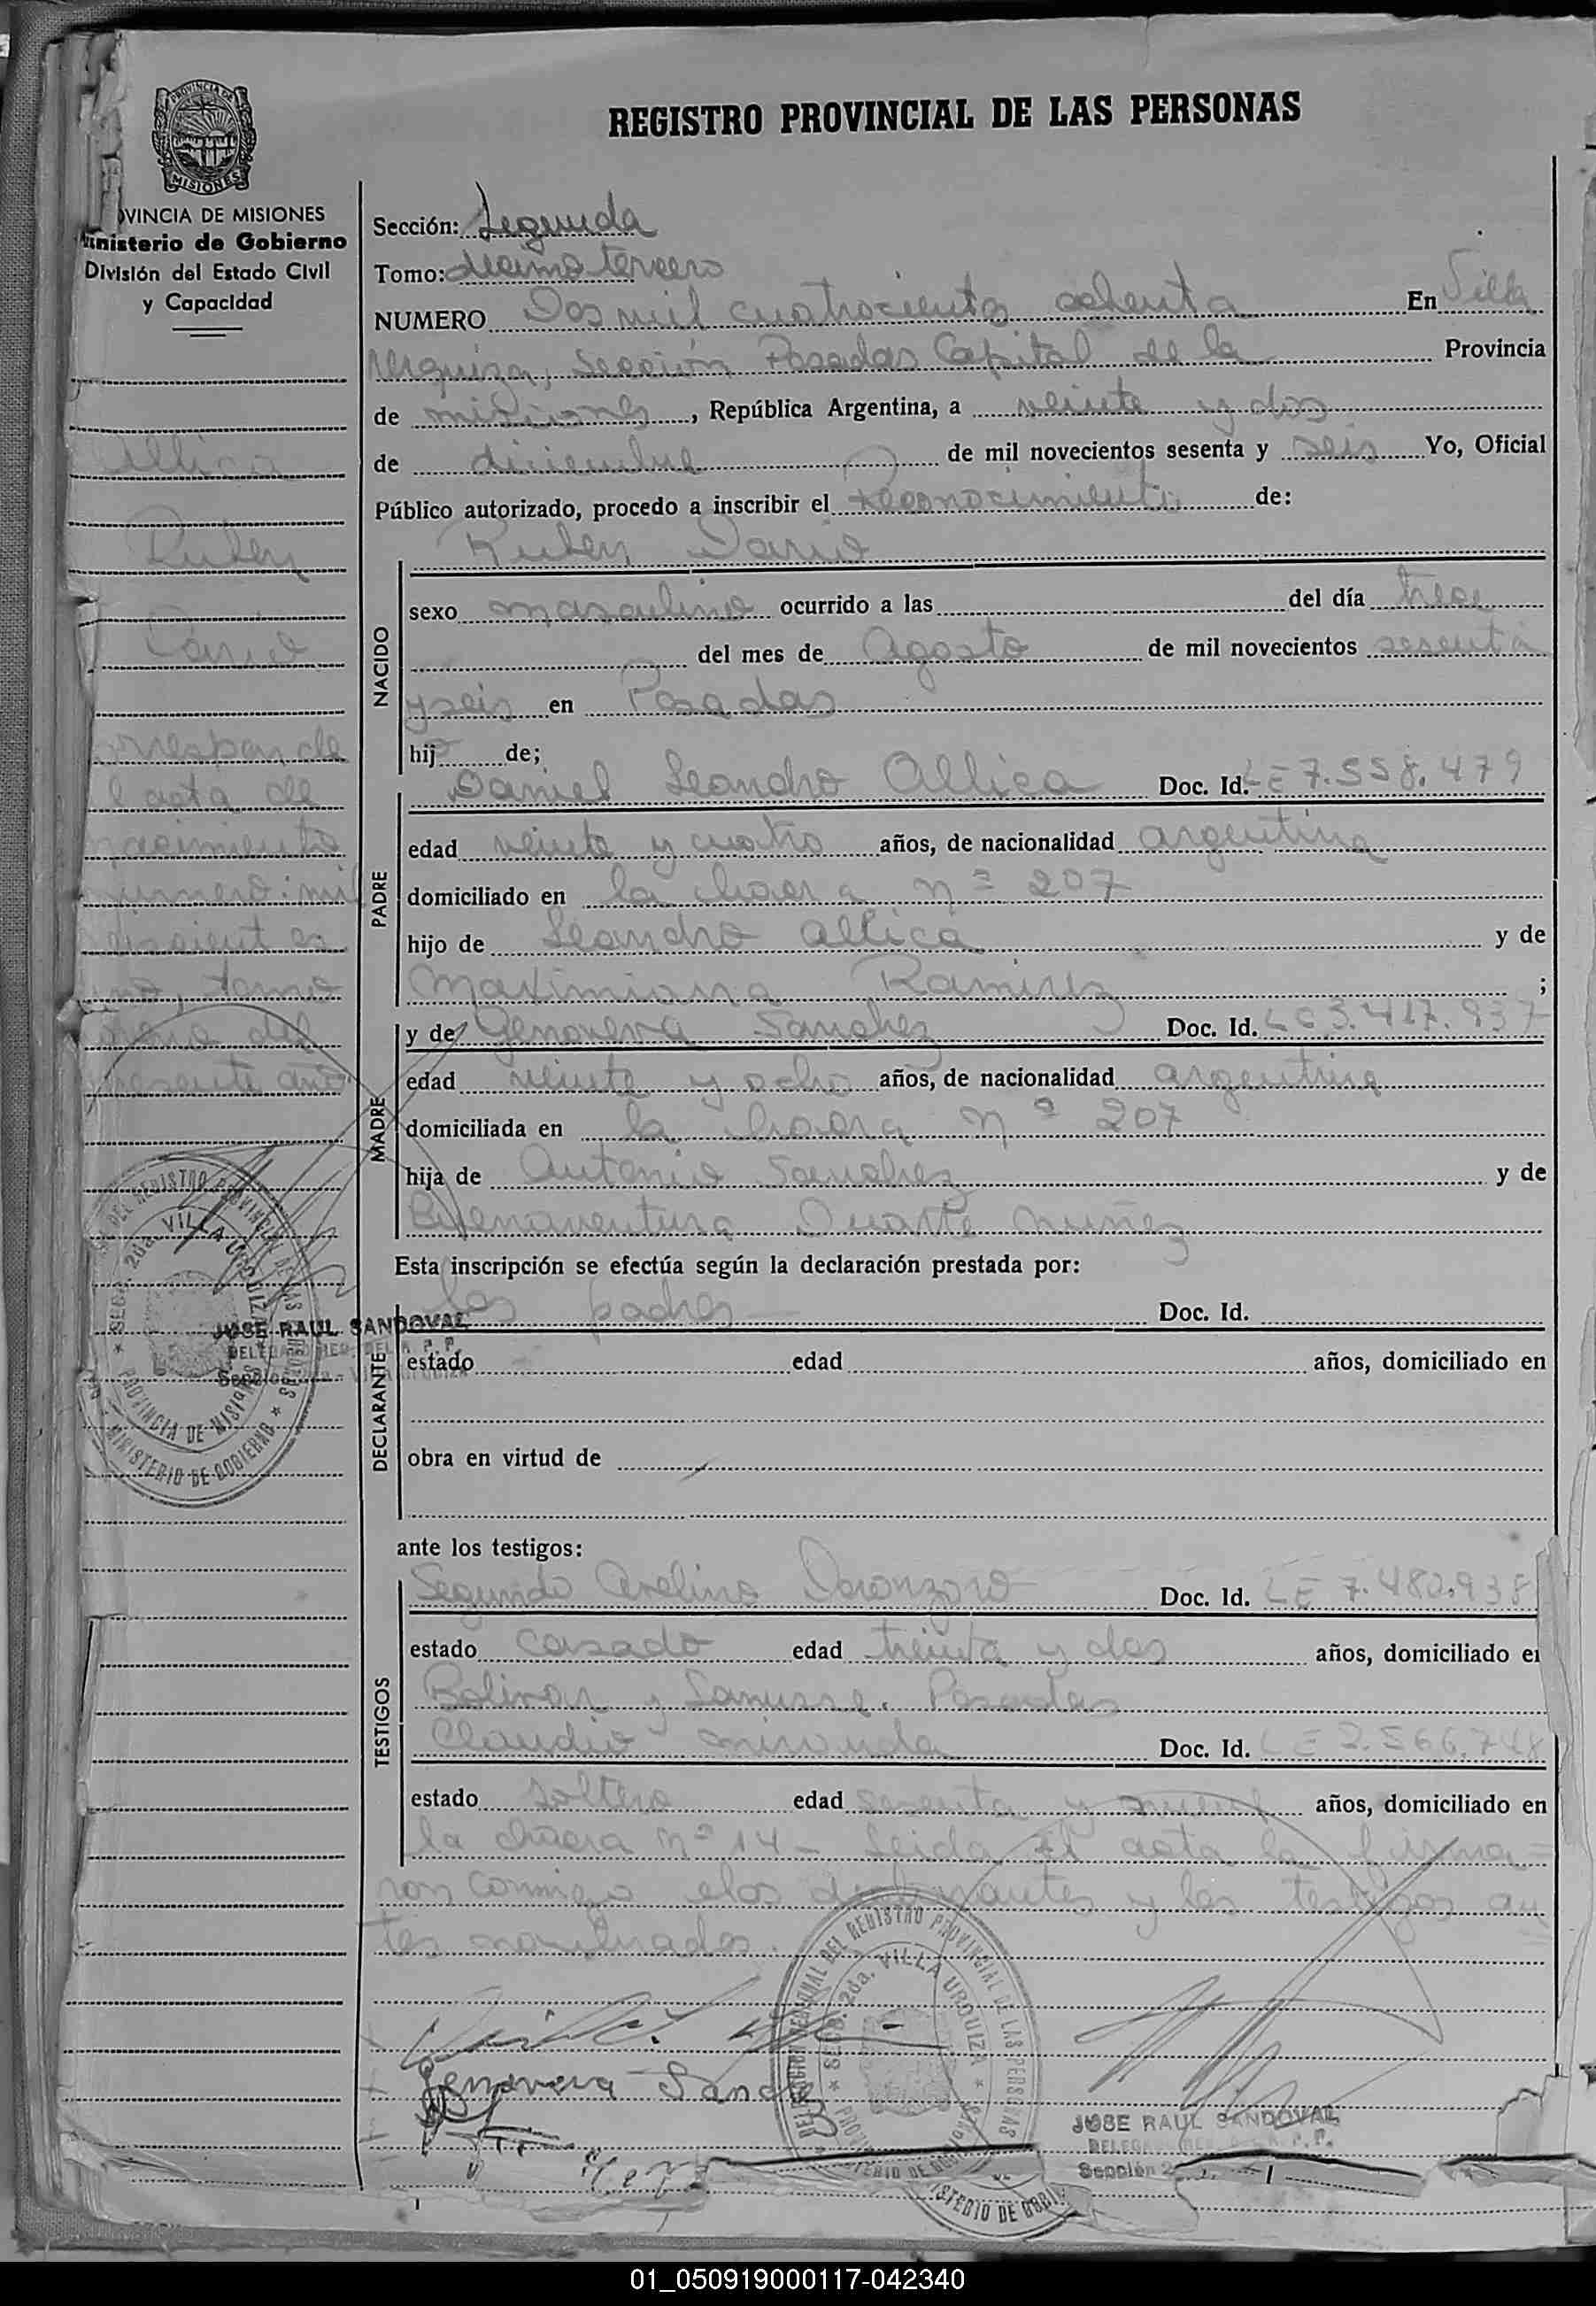 REGISTRO PROVINCIAL DE LAS PERSONAS
PROVINCIA DE MISIONES
VINCIA DE MISIONES
nisterio de Gobierno
División del Estado Civil
y Capacidad
Allica
Ruben
Dario
rresponde
l acta de
nacimiento
numero: mil
no, tomo
del
presente año
Sección: Segunda
Tomo: decimo tercero
NUMERO Dos mil cuatrocientos ochenta En Villa
Urquiza, Sección Posadas Capital de la Provincia
de misiones, República Argentina, a veinte y dos
de diciembre de mil novecientos sesenta y seis Yo, Oficial
Público autorizado, procedo a inscribir el Reconocimiento de:
Ruben Dario
NACIDO
sexo masculino ocurrido a las del día trece
del mes de Agosto de mil novecientos sesenta
y seis en Posadas
hijo de;
PADRE
Daniel Leandro Allica Doc. Id. LE 7.558.479
edad veinte y cuatro años, de nacionalidad argentina
domiciliado en la chacra nº 207
hijo de Leandro Allica y de
Maximiana Ramirez ;
MADRE
y de Genoveva Sanchez Doc. Id. LC 3.417.937
edad veinte y ocho años, de nacionalidad argentina
domiciliada en la chacra nº 207
hija de Antonio Sanchez y de
Buenaventura Duarte Nuñez
Esta inscripción se efectúa según la declaración prestada por:
DECLARANTE
los padres Doc. Id.
estado edad años, domiciliado en
obra en virtud de
ante los testigos:
TESTIGOS
Segundo Avelino Doc. Id. LE 7.480.938
estado casado edad treinta y dos años, domiciliado en
Bolivar y Lanusse. Posadas
Claudio miranda Doc. Id. LE 2.566.748
estado soltero edad sesenta y nueve años, domiciliado en
la chacra nº 14 - Leida el acta la firma=
ron conmigo los declarantes y los testigos an
tes nombrados.
Genoveva Sanchez
JOSE RAUL SANDOVAL
JOSE RAUL SANDOVAL
Sección 2
DELEGACION REGIONAL DEL REGISTRO PROVINCIAL DE LAS PERSONAS
SECC. 2da. VILLA URQUIZA
PROVINCIA DE MISIONES
MINISTERIO DE GOBIERNO
01_050919000117-042340